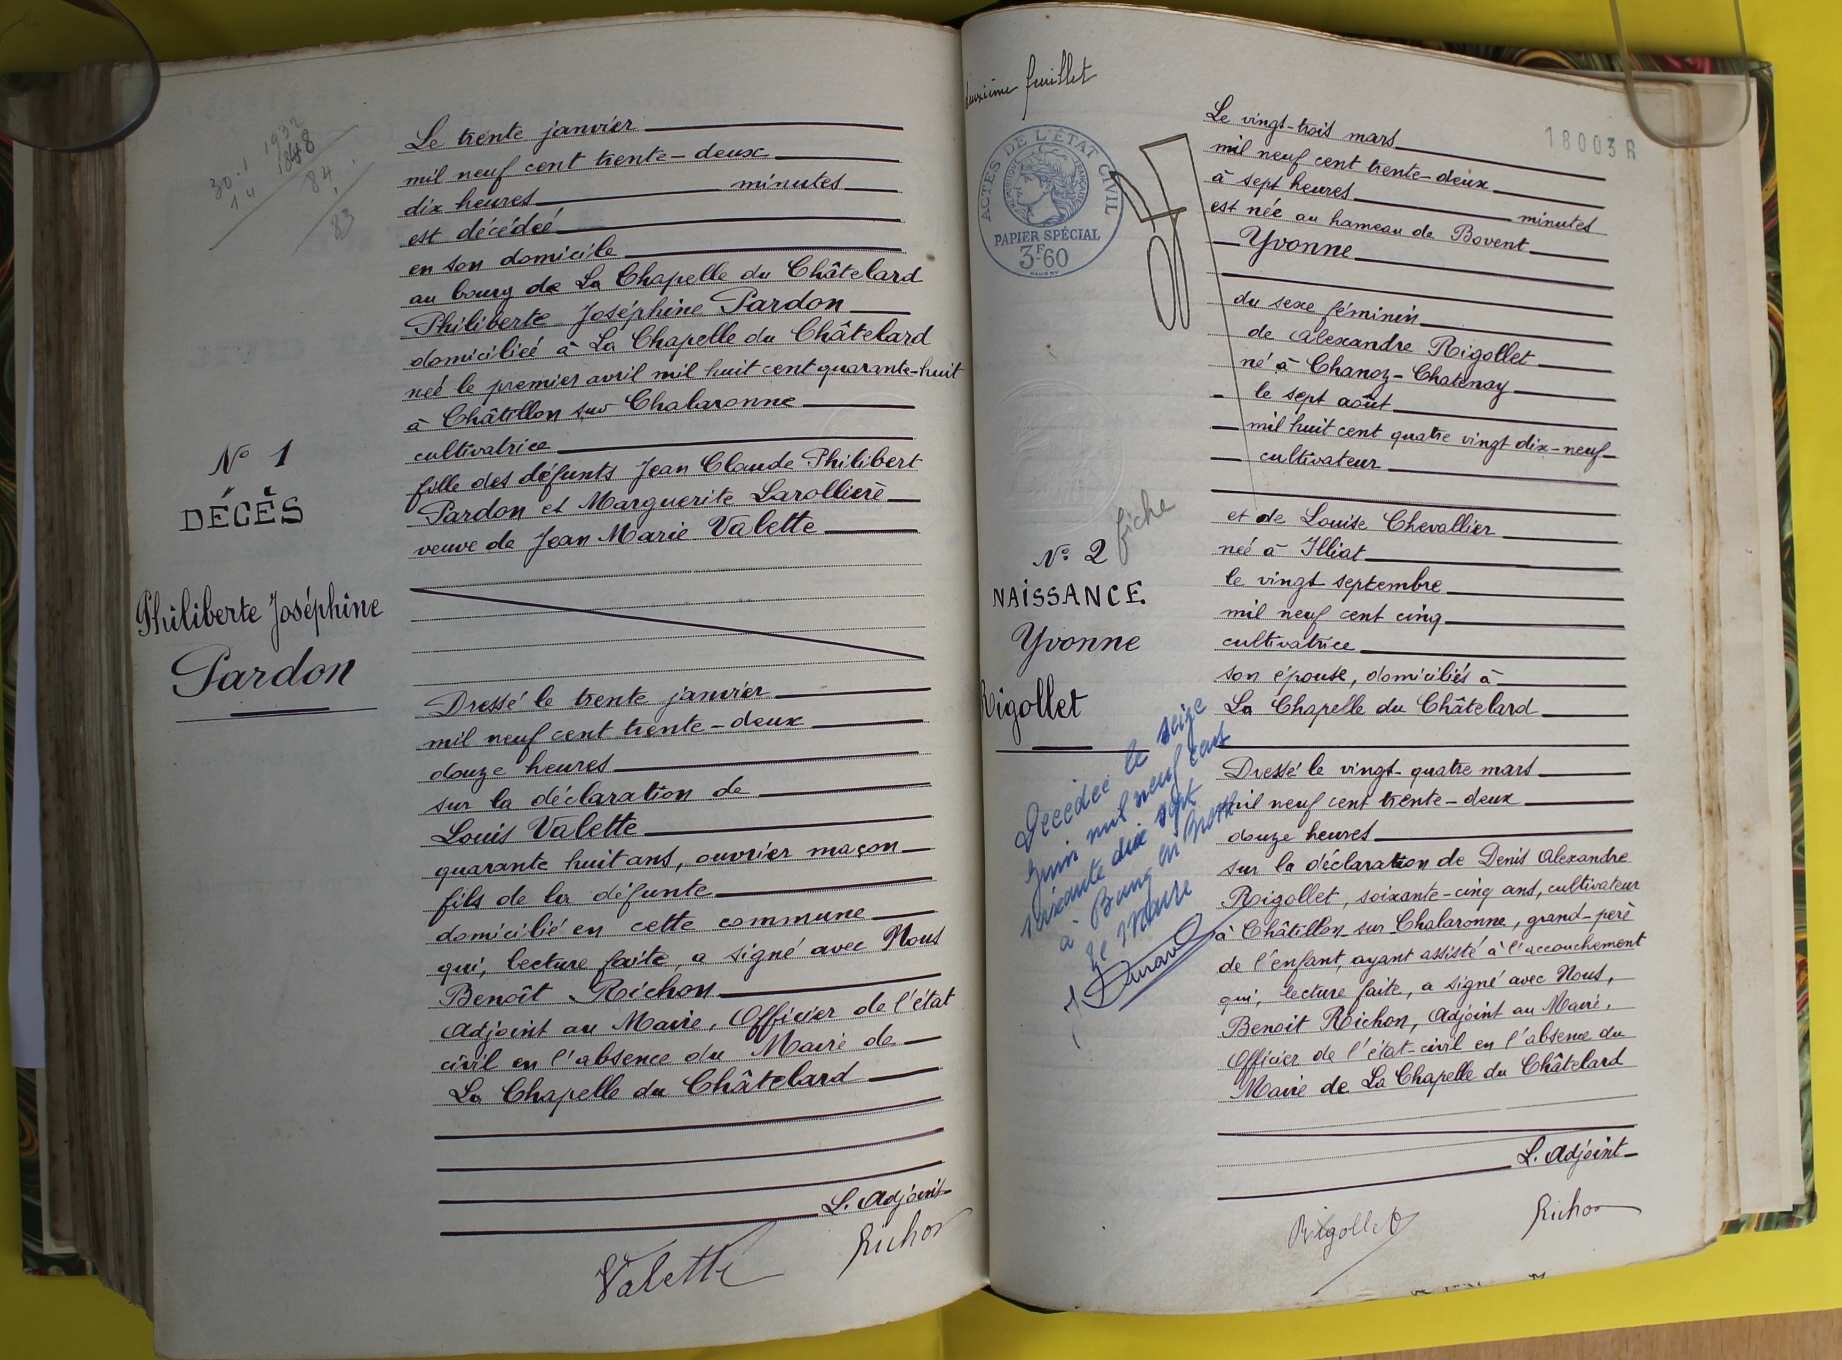 30.1 1932
1 4 1848
84
83
N° 1
DÉCÈS
Philiberte Joséphine
Pardon
Le trente janvier
mil neuf cent trente-deux
dix heures minutes
est décédée
en son domicile
au bourg de La Chapelle du Châtelard
Philiberte Joséphine Pardon
domiciliée à La Chapelle du Châtelard
née le premier avril mil huit cent quarante-huit
à Châtillon sur Chalaronne
cultivatrice
fille des défunts Jean Claude Philibert
Pardon et Marguerite Larollière
veuve de Jean Marie Valette
Dressé le trente janvier
mil neuf cent trente-deux
douze heures
sur la déclaration de
Louis Valette
quarante huit ans, ouvrier maçon
fils de la défunte
domicilié en cette commune
qui, lecture faite, a signé avec Nous
Benoît Richon
Adjoint au Maire, Officier de l'état
civil en l'absence du Maire de
La Chapelle du Châtelard
L. Adjoint
Valette
Richon
deuxième feuillet
ACTES DE L'ÉTAT CIVIL
PAPIER SPÉCIAL
3F60
18003R
N° 2
fiche
NAISSANCE
Yvonne
Rigollet
Décédée le seize
Juin mil neuf cent
soixante dix sept
à Bourg en Bresse
Le Maire
Le vingt-trois mars
mil neuf cent trente-deux
à sept heures minutes
est née au hameau de Bovent
Yvonne
du sexe féminin
de Alexandre Rigollet
né à Chanoz-Chatenay
le sept août
mil huit cent quatre vingt dix-neuf
cultivateur
et de Louise Chevallier
née à Illiat
le vingt septembre
mil neuf cent cinq
cultivatrice
son épouse, domiciliés à
La Chapelle du Châtelard
Dressé le vingt-quatre mars
mil neuf cent trente-deux
douze heures
sur la déclaration de Denis Alexandre
Rigollet, soixante-cinq ans, cultivateur
à Châtillon sur Chalaronne, grand-père
de l'enfant, ayant assisté à l'accouchement
qui, lecture faite, a signé avec Nous,
Benoit Richon, Adjoint au Maire,
Officier de l'état-civil en l'absence du
Maire de La Chapelle du Châtelard
L. Adjoint
Rigollet
Richon